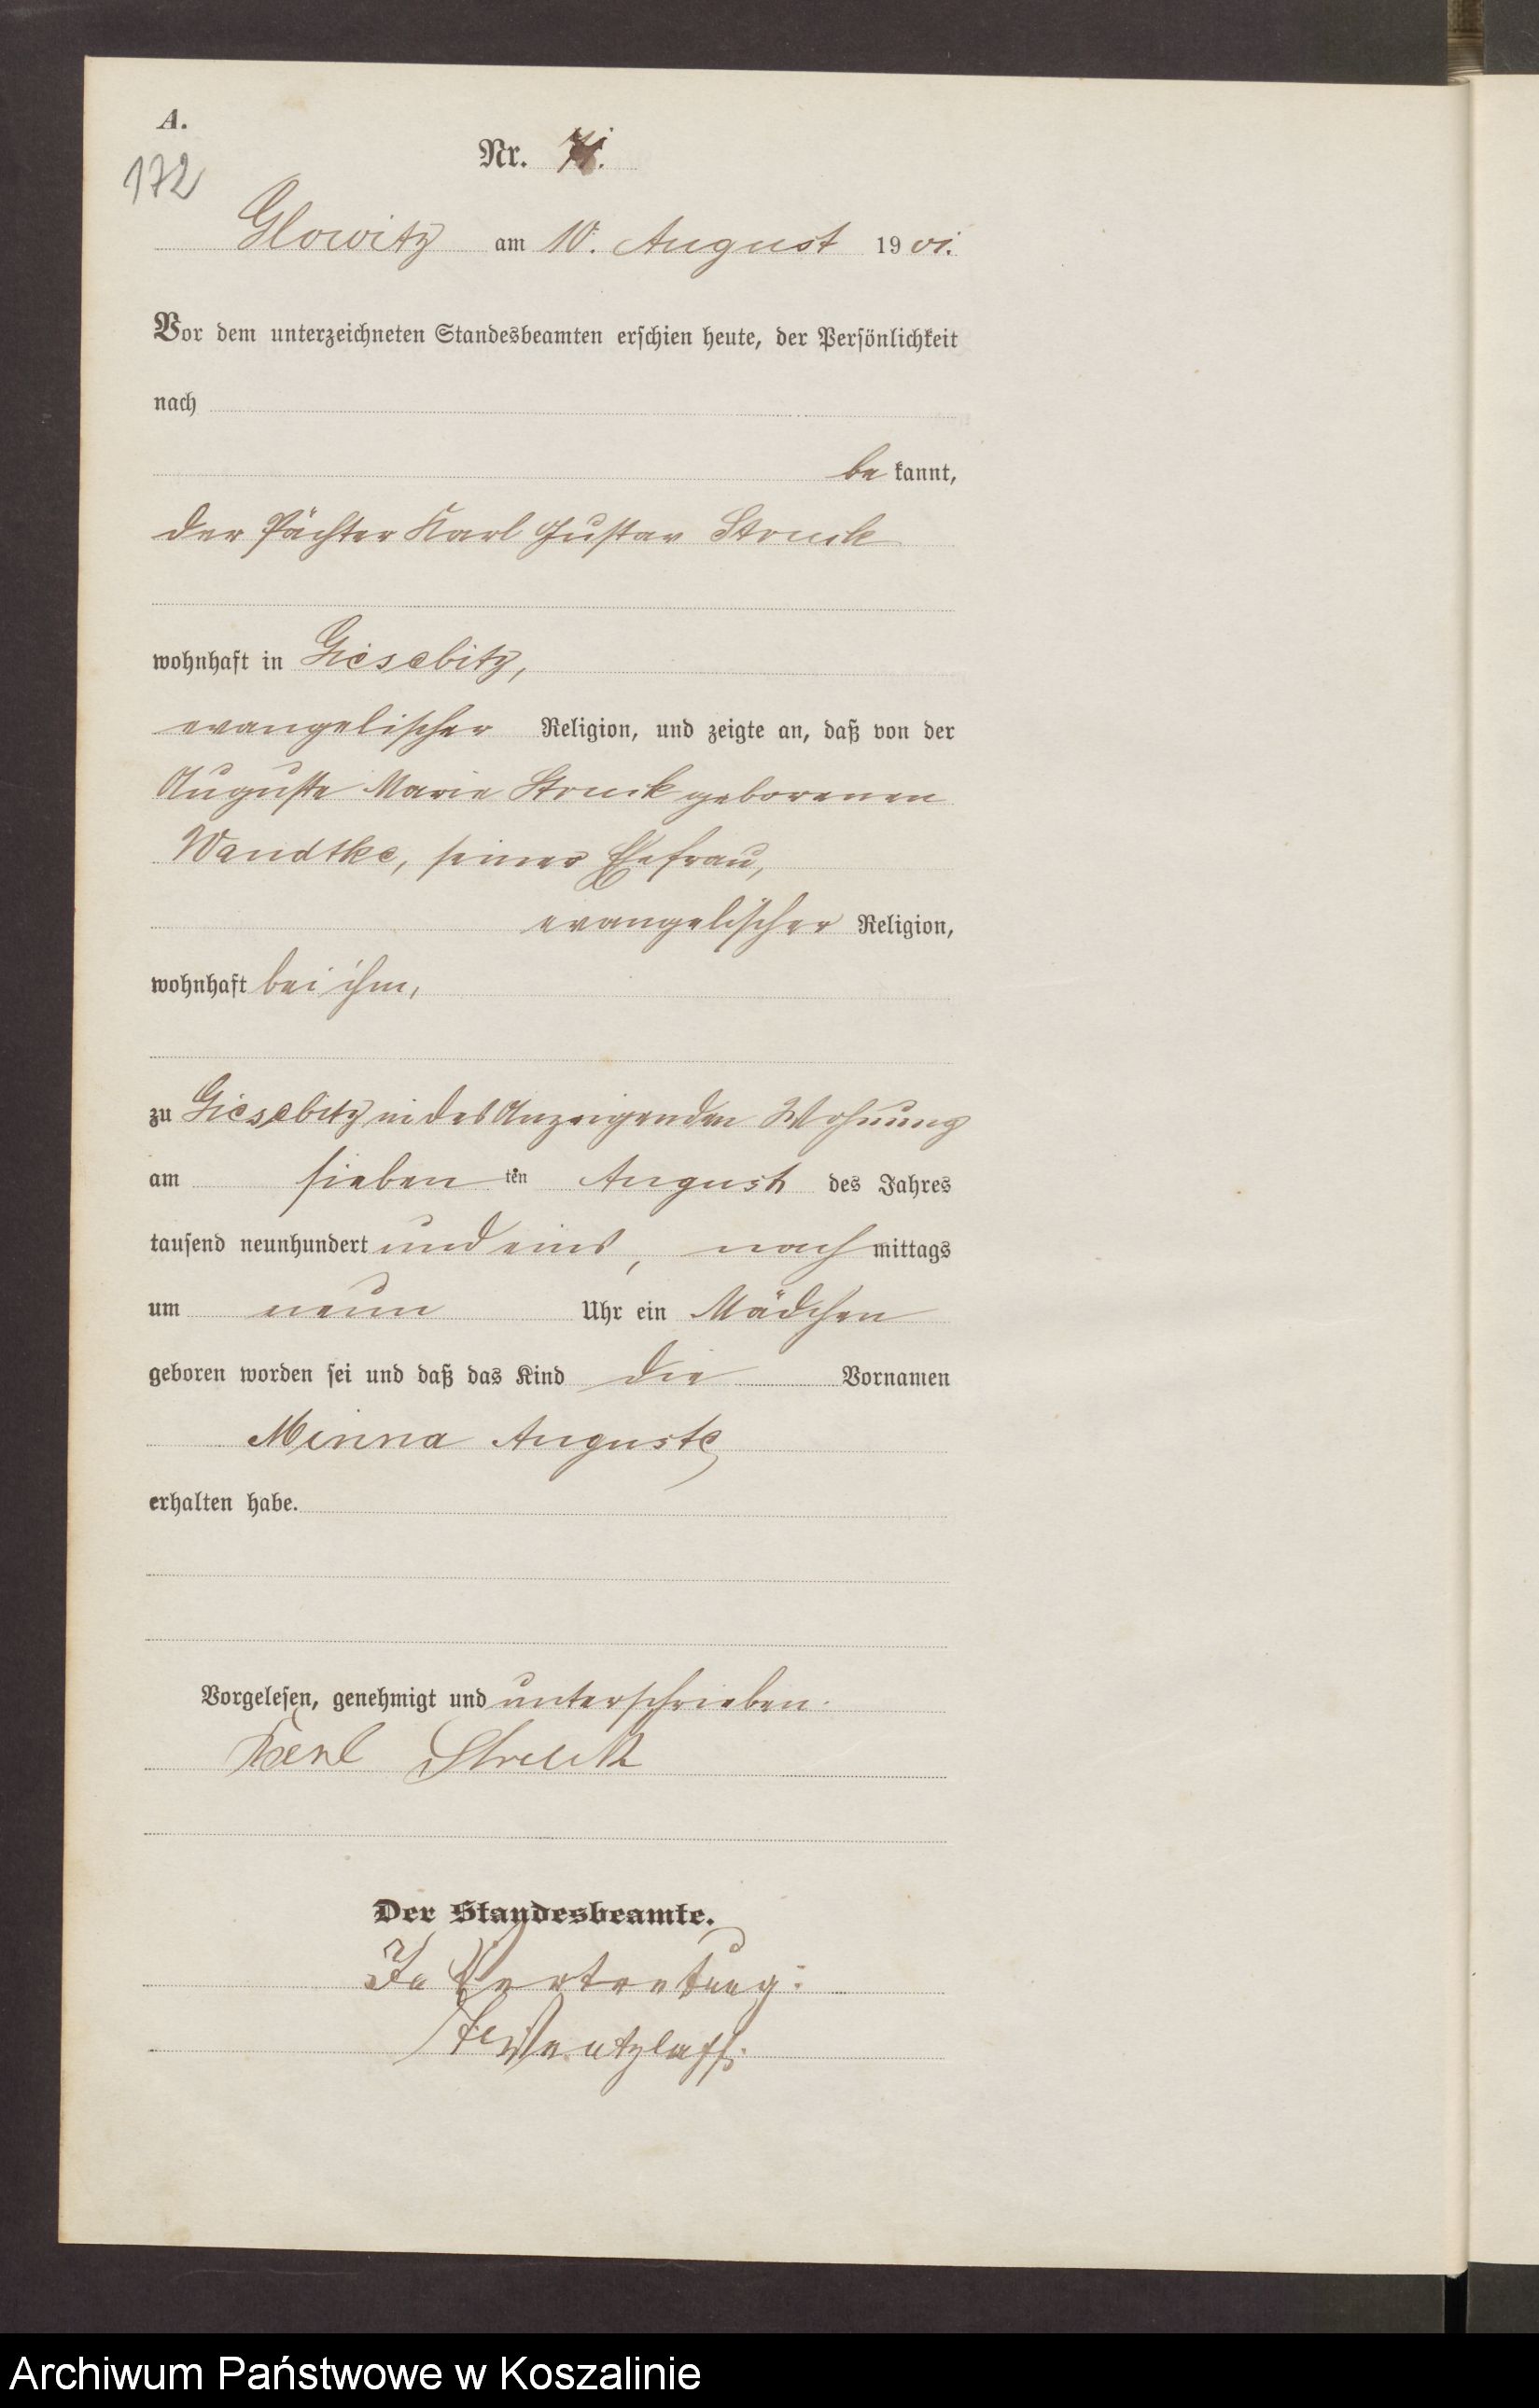 A.
172
Nr. 71.
Glowitz am 10. August 1901.
Vor dem unterzeichneten Standesbeamten erschien heute, der Persönlichkeit
nach
be kannt,
der Pächter Karl Gustav Struck
wohnhaft in Giesebitz,
evangelischer Religion, und zeigte an, daß von der
Auguste Marie Struck geborenen
Wandtke, seiner Ehefrau,
evangelischer Religion,
wohnhaft bei ihm,
zu Giesebitz in des Anzeigenden Wohnung
am sieben ten August des Jahres
tausend neunhundert und eins, nach mittags
um neun Uhr ein Mädchen
geboren worden sei und daß das Kind die Vornamen
Minna Auguste
erhalten habe.
Vorgelesen, genehmigt und unterschrieben.
Karl Struck
Der Standesbeamte.
In Vertretung:
Wentzlaff.
Archiwum Państwowe w Koszalinie